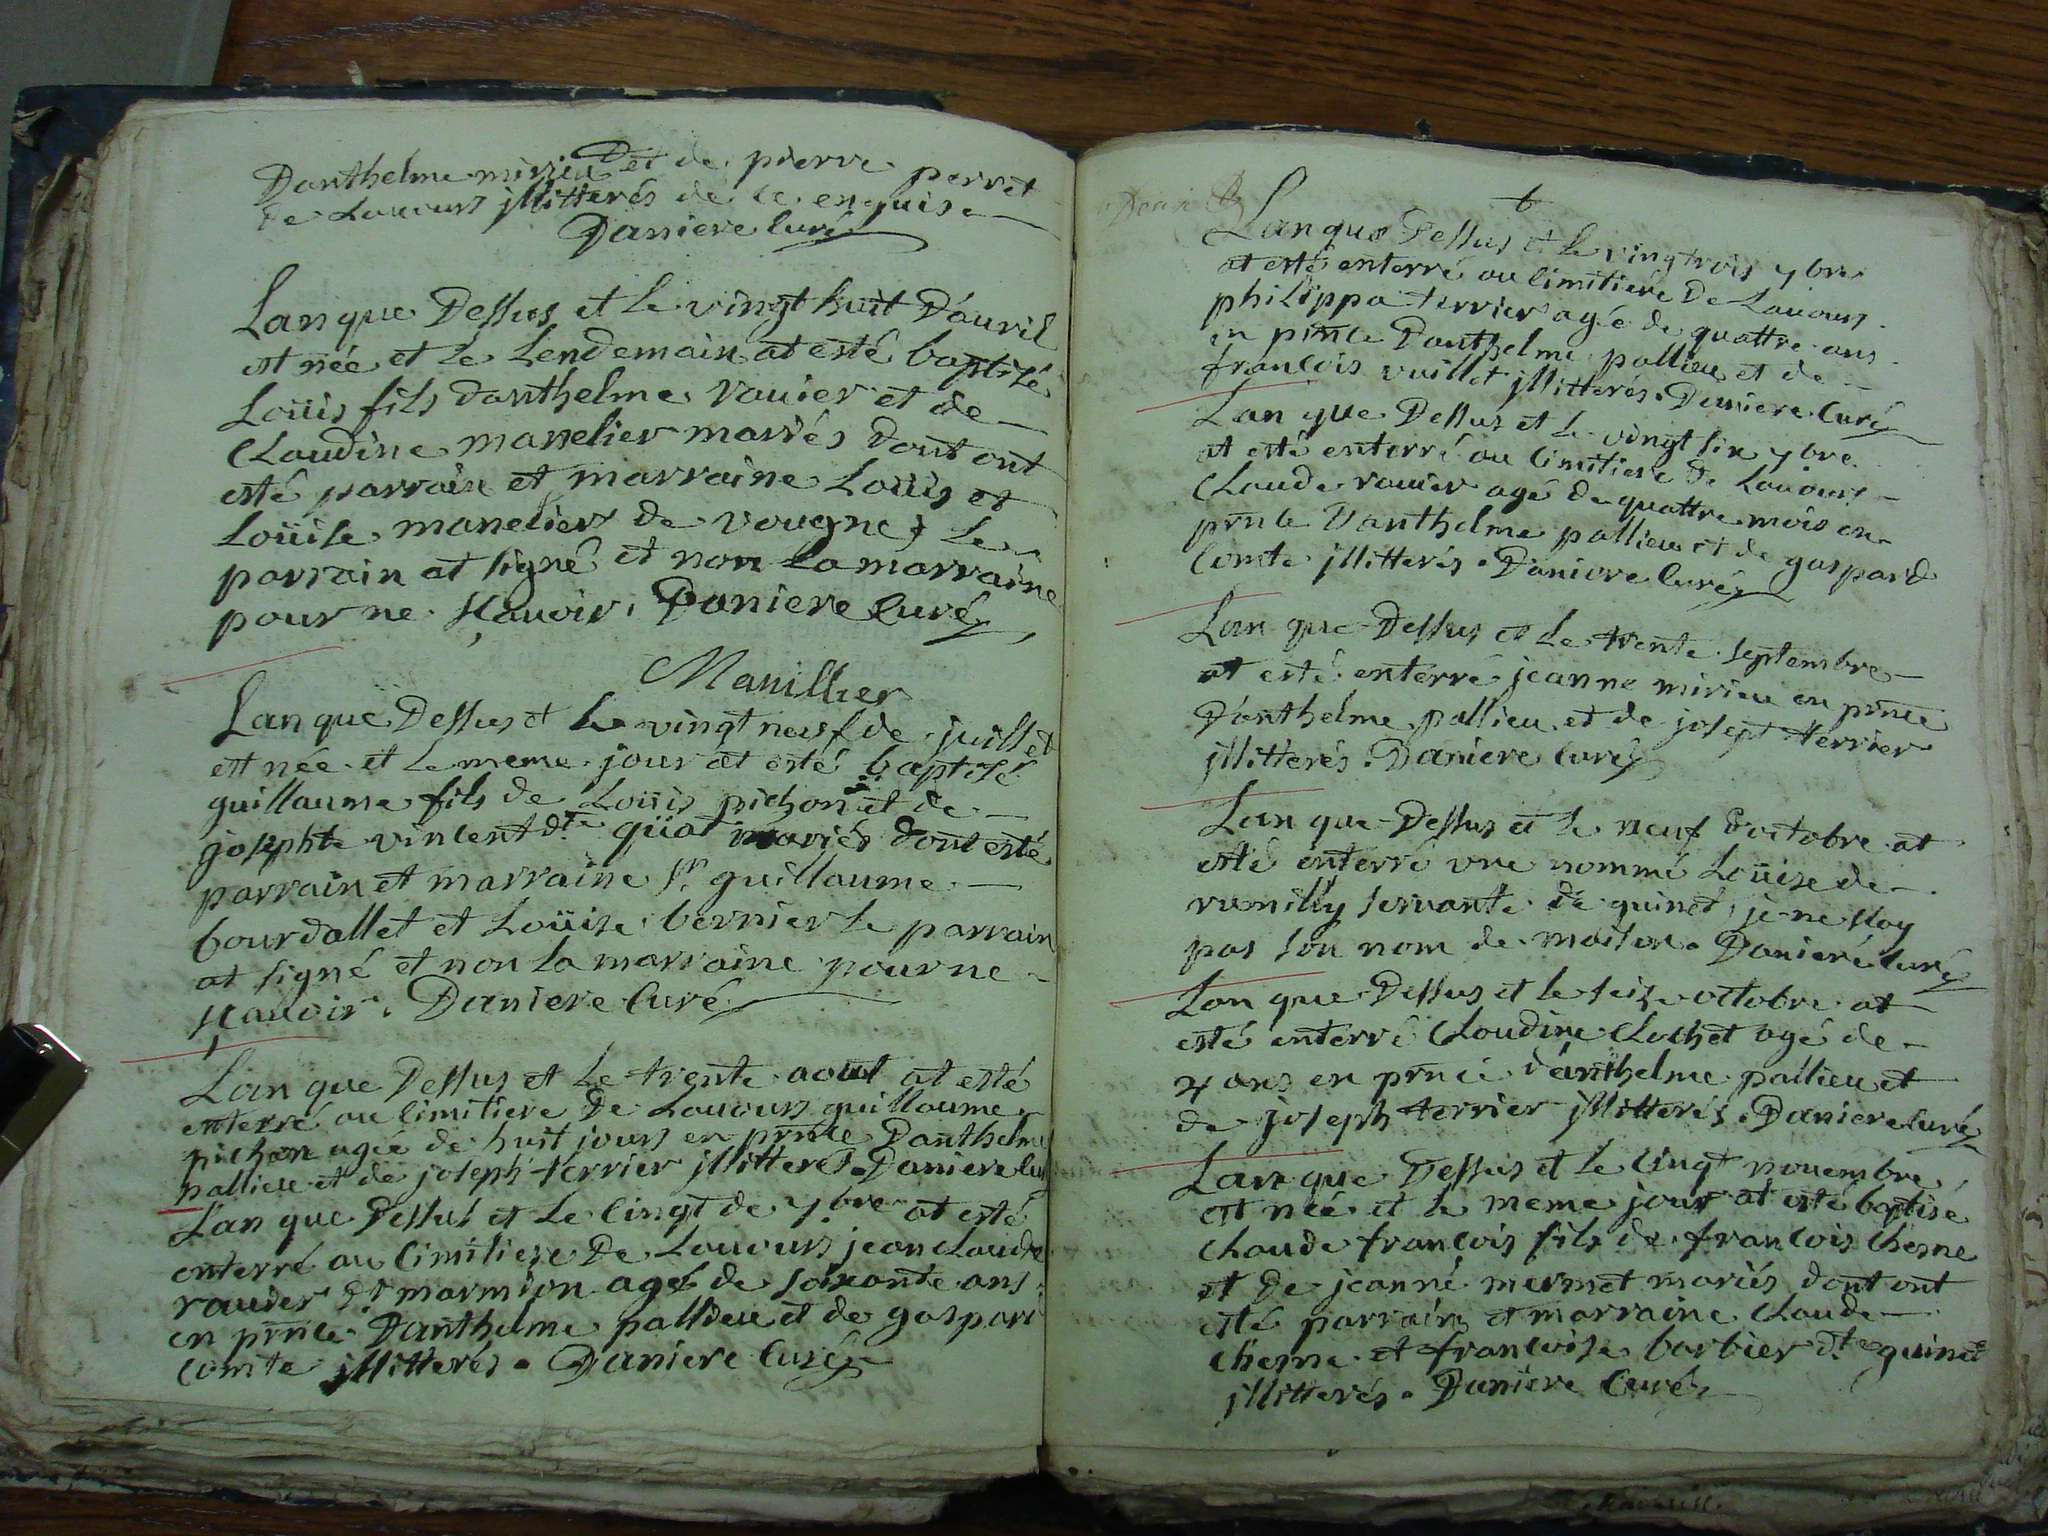 Danthelme mirieu et de pierre perret
de Lauours jllitterés de ce enquis
Daniere Curé
Lan que Dessus et le vingt huit Dauril
est née et le Lendemain at esté baptisé
Loüis fils danthelme rauier et de
Claudine manelier mariés Dont ont
esté parrain et marraine Loüis et
Loüise manelier de vougne, Le
parrain at signé et non la marraine
pour ne sçauoir, Daniere Curé
Manillier
Lan que Dessus et le vingt neuf de juillet
est née et le meme jour at esté baptisé
guillaume fils de Loüis pichon et de
josephte vincent dte quat mariés dont esté
parrain et marraine sr guillaume
bourdallet et Loüise bernier le parrain
at signé et non la marraine pour ne
sçauoir. Daniere Curé
Lan que Dessus et le trente aout at esté
enterré au Cimitiere De Lauours guillaume
pichon agée de huit jours en pnce Danthelme
pallieu et de joseph terrier jllitterés. Daniere Cu
Lan que Dessus et le Cingt de 7bre at esté
enterré au Cimitiere De Lauours jean Claude
rauier dt marmion agé de soixante ans
en pnce Danthelme pallieu et de gaspard
Comte jllitterés. Daniere Curé
Lan que Dessus et le vingtrois 7bre
at esté enterré au Cimitiére De Lauours
philippa terrier agée de quattre ans
en pnce Danthelme pallieu et de
francois vuillet jllitterés. Daniere Curé
Lan que Dessus et le vingt six 7bre
at esté enterré au Cimitiere De Lauours
Claude rauier agé de quattre mois en
pnce Danthelme pallieu et de gaspard
Comte jllitterés. Daniere Curé
Lan que Dessus et Le trente septembre
at esté enterré jeanne mirieu en pnce
Danthelme pallieu et de josept terrier
jllitterés. Daniere Curé
Lan que Dessus et le neuf doctobre at
esté enterré vne nommé Loüise de
rumilly seruante de guinet, je ne sçay
pas son nom de maison. Danieré Curé
Lan que Dessus et le seize octobre at
esté enterré Claudine Clochet agé de
4 ans en pnce dánthelme pallieu et
de joseph terrier jllitterés. Daniere Curé
Lan que Dessus et le Cingt nouembre
est née et le meme jour at esté baptisé
Claude francois fils de francois Chesne
et de jeanne mermet mariés dont ont
esté parrain et marraine Claude
Chesne et francoise barbier dte guinet
jllitterés. Daniere Curé